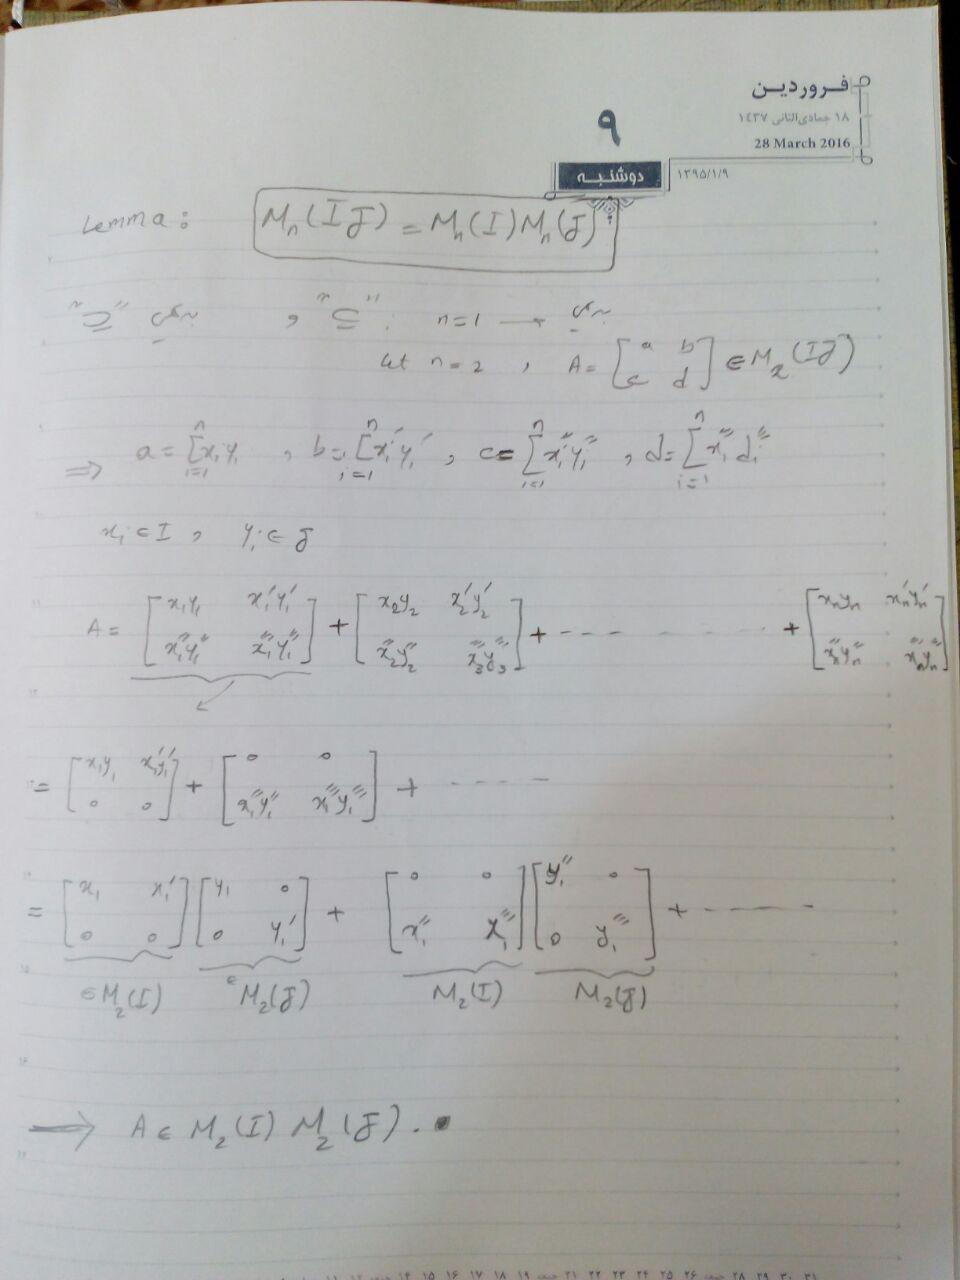 فروردین
۱۸ جمادی‌الثانی ۱۴۳۷
28 March 2016
۹
دوشنبه
۱۳۹۵/۱/۹
Lemma: Mₙ(IJ) = Mₙ(I)Mₙ(J)
"⊇" , "⊆": n=1 →
let n=2 , A = [a b; c d] ∈ M₂(IJ)
⇒ a = Σⁿᵢ₌₁ xᵢyᵢ , b = Σⁿᵢ₌₁ x'ᵢy'ᵢ , c = Σⁿᵢ₌₁ x''ᵢy''ᵢ , d = Σⁿᵢ₌₁ x'''ᵢdᵢ'''
xᵢ ∈ I , yᵢ ∈ J
A = [x₁y₁ x'₁y'₁; x''₁y''₁ x'''₁y'''₁] + [x₂y₂ x'₂y'₂; x''₂y''₂ x'''₃y'''₃] + ------- + [xₙyₙ x'ₙy'ₙ; x''ₙyₙ'' x'''ₙy'''ₙ]
= [x₁y₁ x'₁y'₁; 0 0] + [0 0; x''₁y''₁ x'''₁y'''₁] + ----
= [x₁ x₁'; 0 0][y₁ 0; 0 y₁'] + [0 0; x₁'' x₁'''][y₁'' 0; 0 y₁'''] + -----
∈M₂(I) ∈M₂(J) M₂(I) M₂(J)
⟶ A ∈ M₂(I) M₂(J). ■